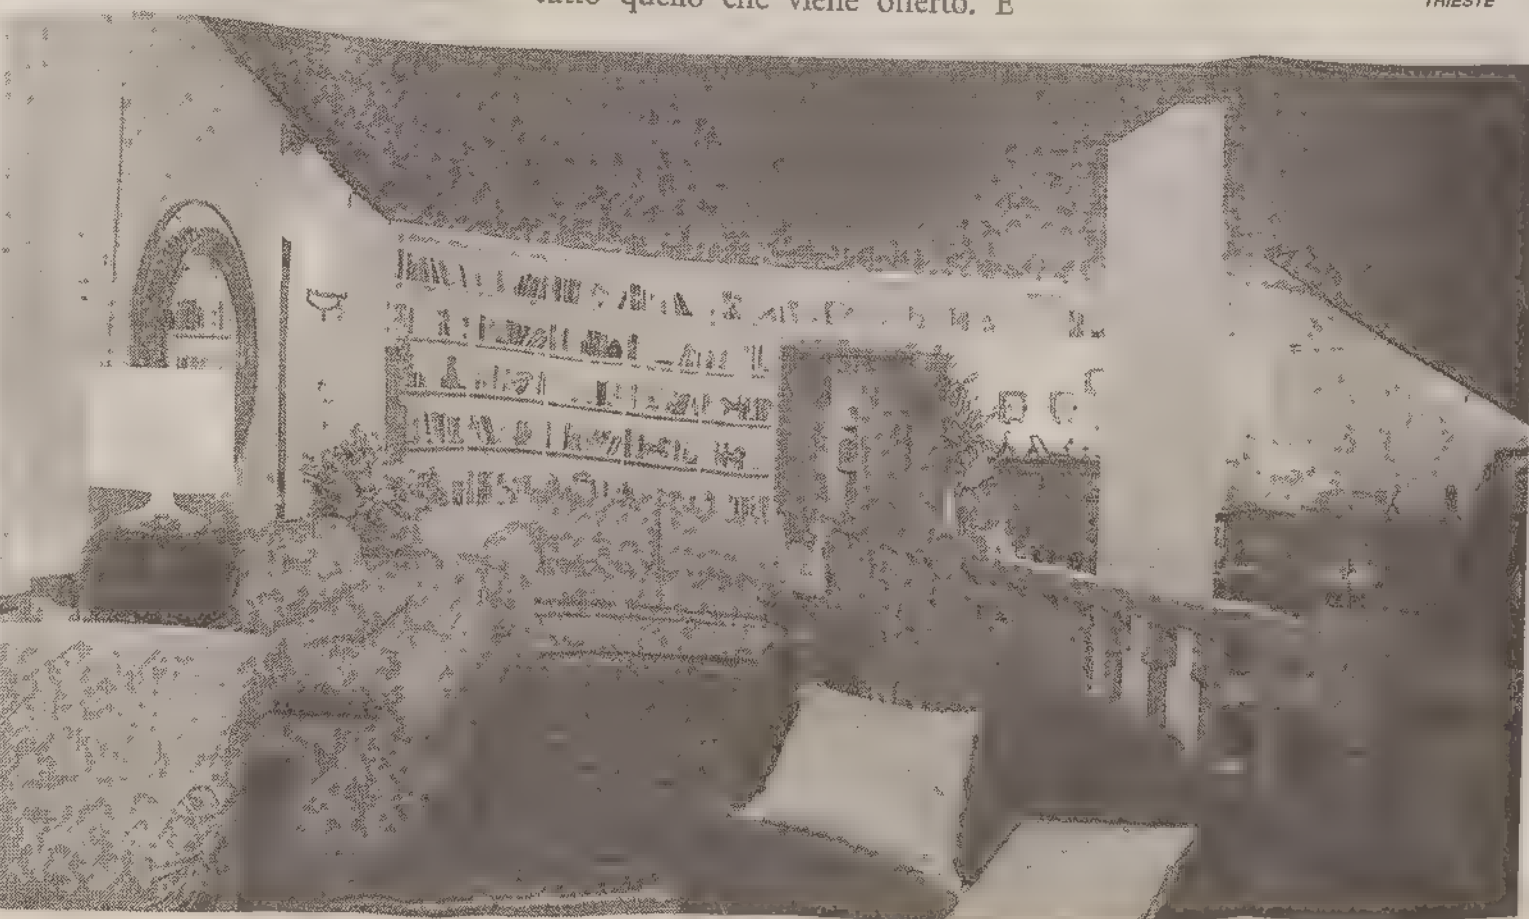 tutto quello che viene offerto. E
TRIESTE